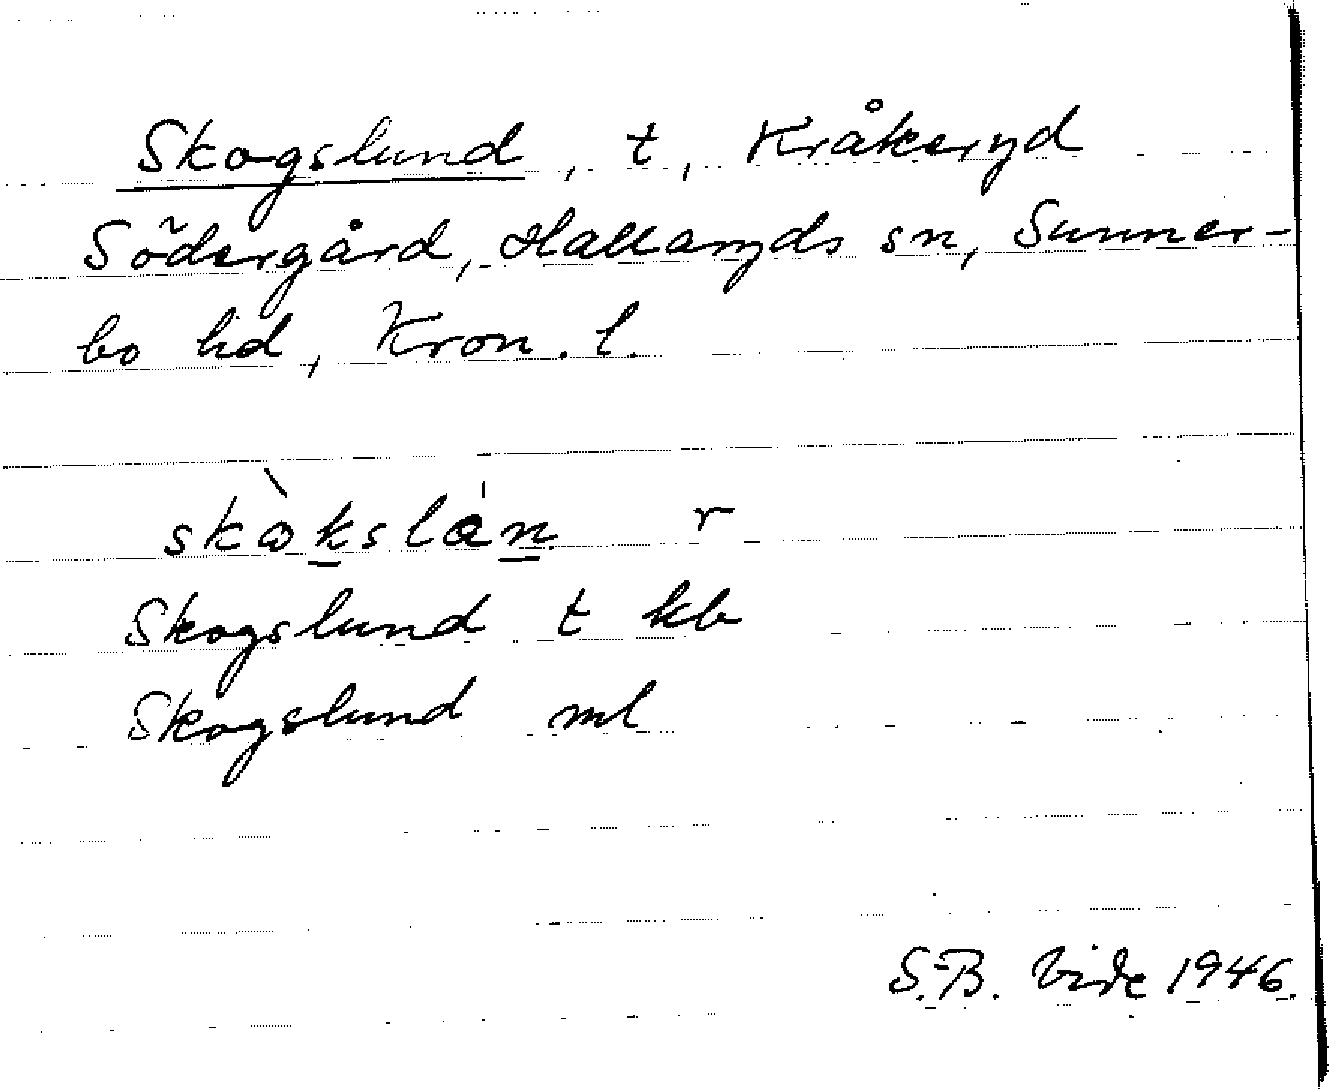 Skogslund, t, Kråkeryd
Södergård, Hallaryds sn, Sunner-
bo hd, Kron. l.
r
Skogslund t kb
Skogslund ml
S.-B. Vide 1946.